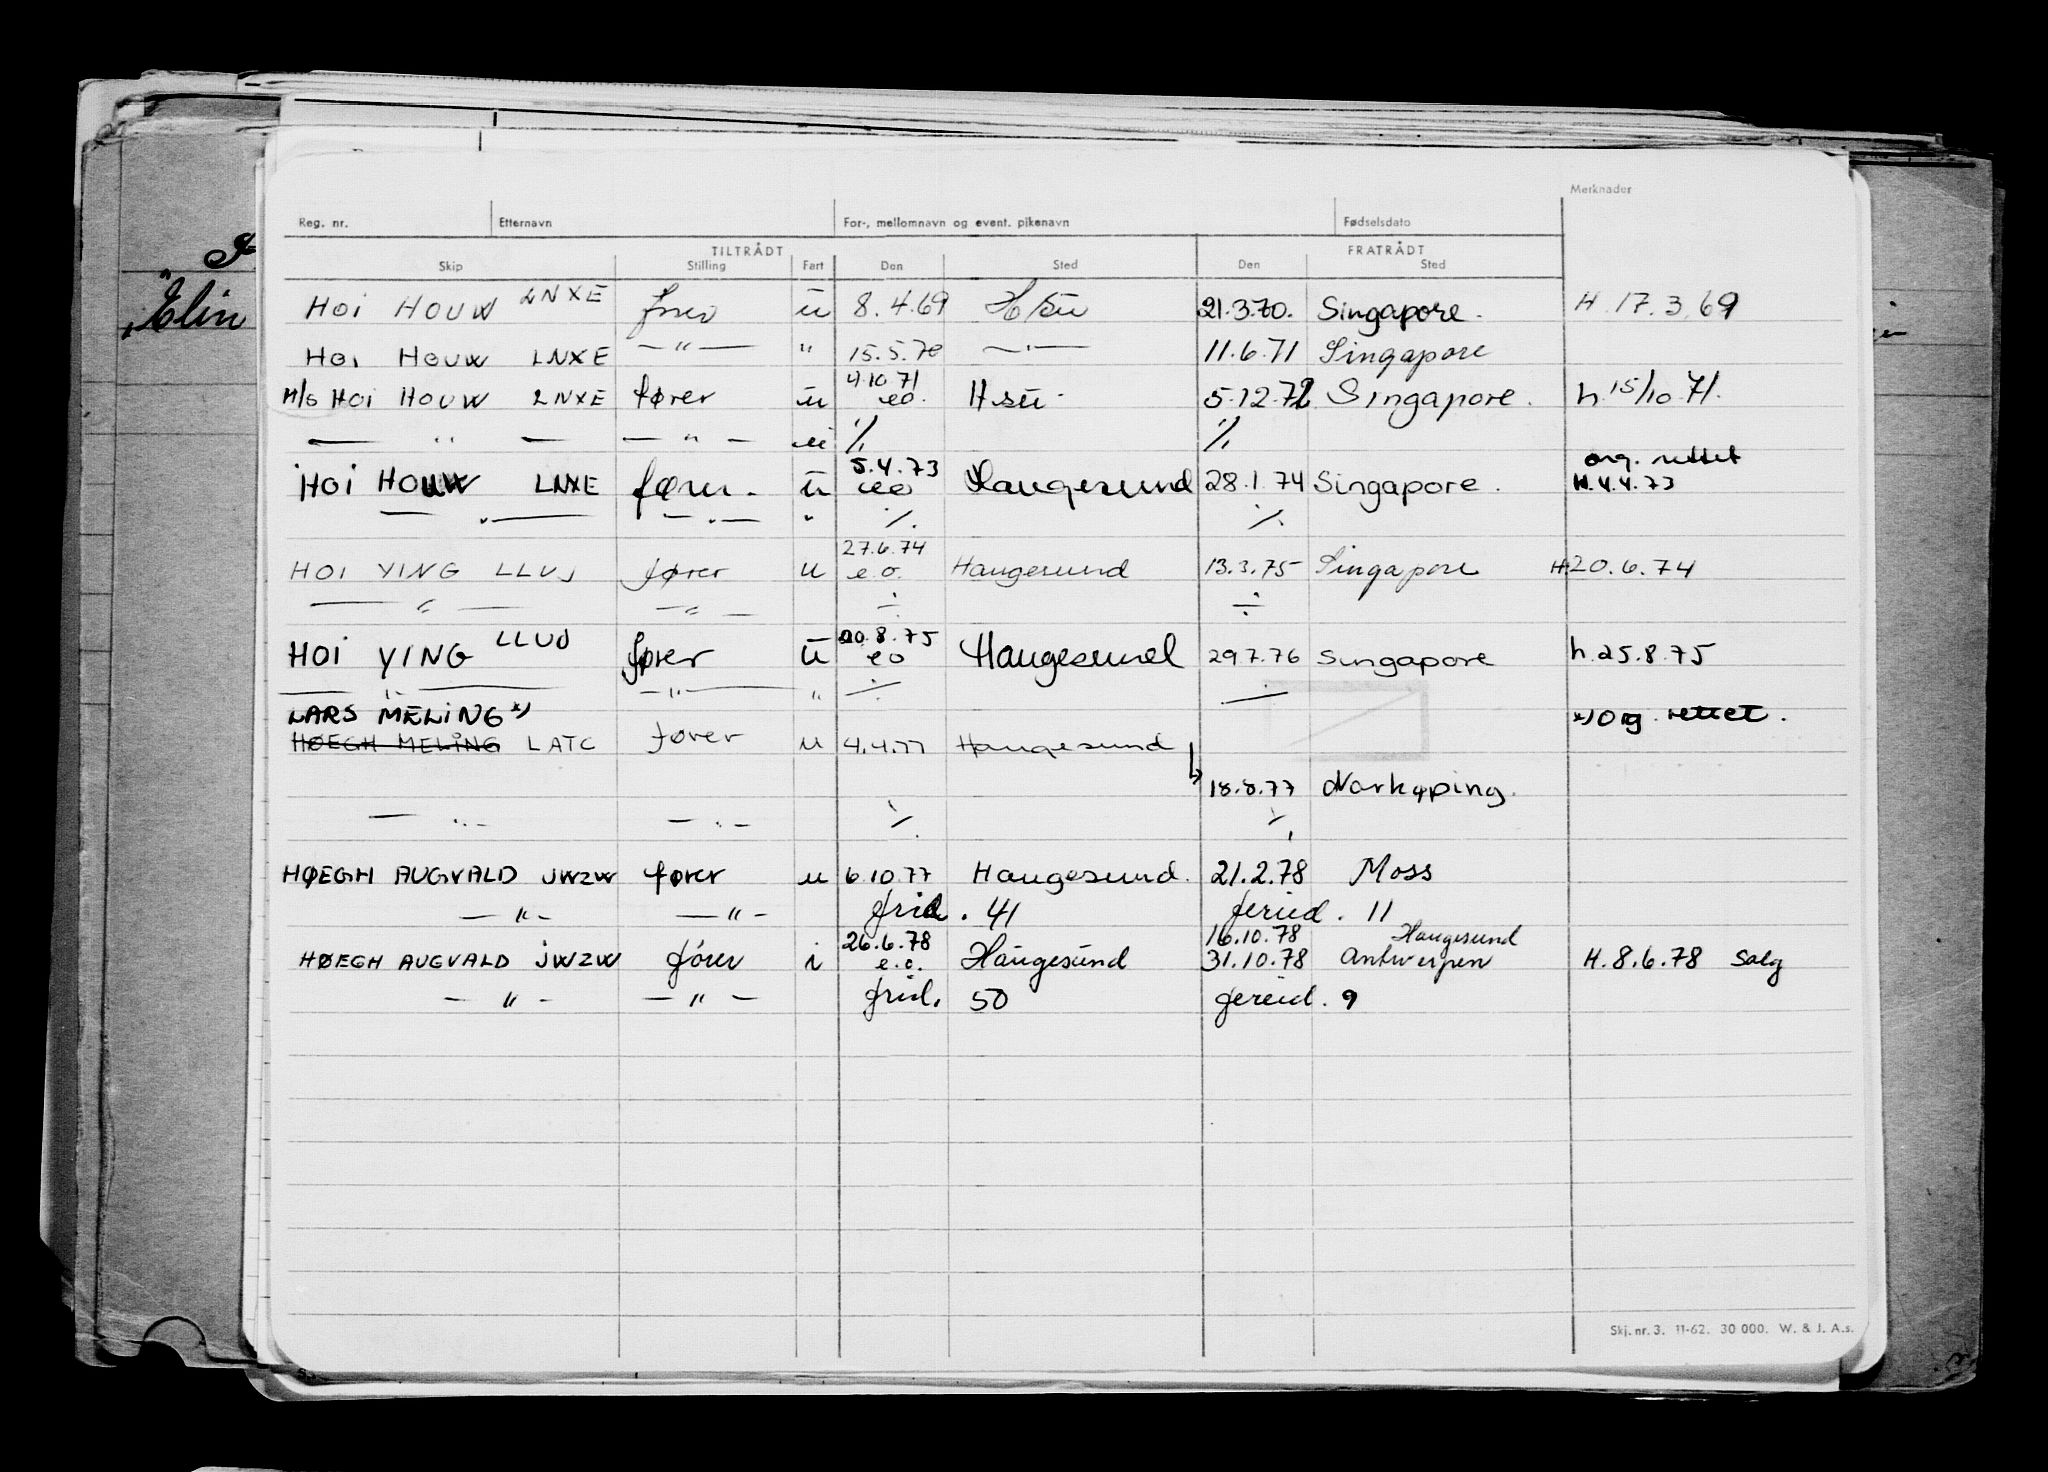 Merknader
Reg. nr. Etternavn For-, mellomnavn og event. pikenavn Fødselsdato
TILTRÅDT FRATRÅDT
Skip Stilling Fart Den Sted Den Sted
HOI HOUW LNXE fører u 8.4.69 H/su 21.3.70. Singapore. H. 17.3.69
HOI HOUW LNXE — " — " 15.5.70 — " — 11.6.71 Singapore
M/S HOI HOUW LNXE fører u 4.10.71 eo. H.su. 5.12.72 Singapore. h. 15/10.71.
— " — — " — u ./. ./.
HOI HOUW LNXE fører. u 5.4.73 eo Haugesund 28.1.74 Singapore. org. rettet H.4.4.73
— " — — " — " ./. ./.
HOI YING LLVJ fører u 27.6.74 e.o. Haugesund 13.3.75 Singapore H 20.6.74
— " — — " — ÷ ÷
HOI YING LLVJ fører u 20.8.75 eo Haugesund 29.7.76 Singapore h.25.8.75
— " — — " — " ÷ ÷
LARS MELING *) *) Org. rettet.
HØEGH MELING LATC fører u 4.4.77 Haugesund
18.8.77 Norkøping.
— " — — " — ./. ./.
HØEGH AUGVALD JWZW fører u 6.10.77 Haugesund. 21.2.78 Moss
— " — — " — frid. 41 feried. 11
HØEGH AUGVALD JWZW fører i 26.6.78 e.o. Haugesund 16.10.78 Haugesund 31.10.78 Antwerpen H.8.6.78 Salg
— " — — " — frid. 50 feried. 9
Skj. nr. 3. 11-62. 30 000. W. & J. A.s.
Elin